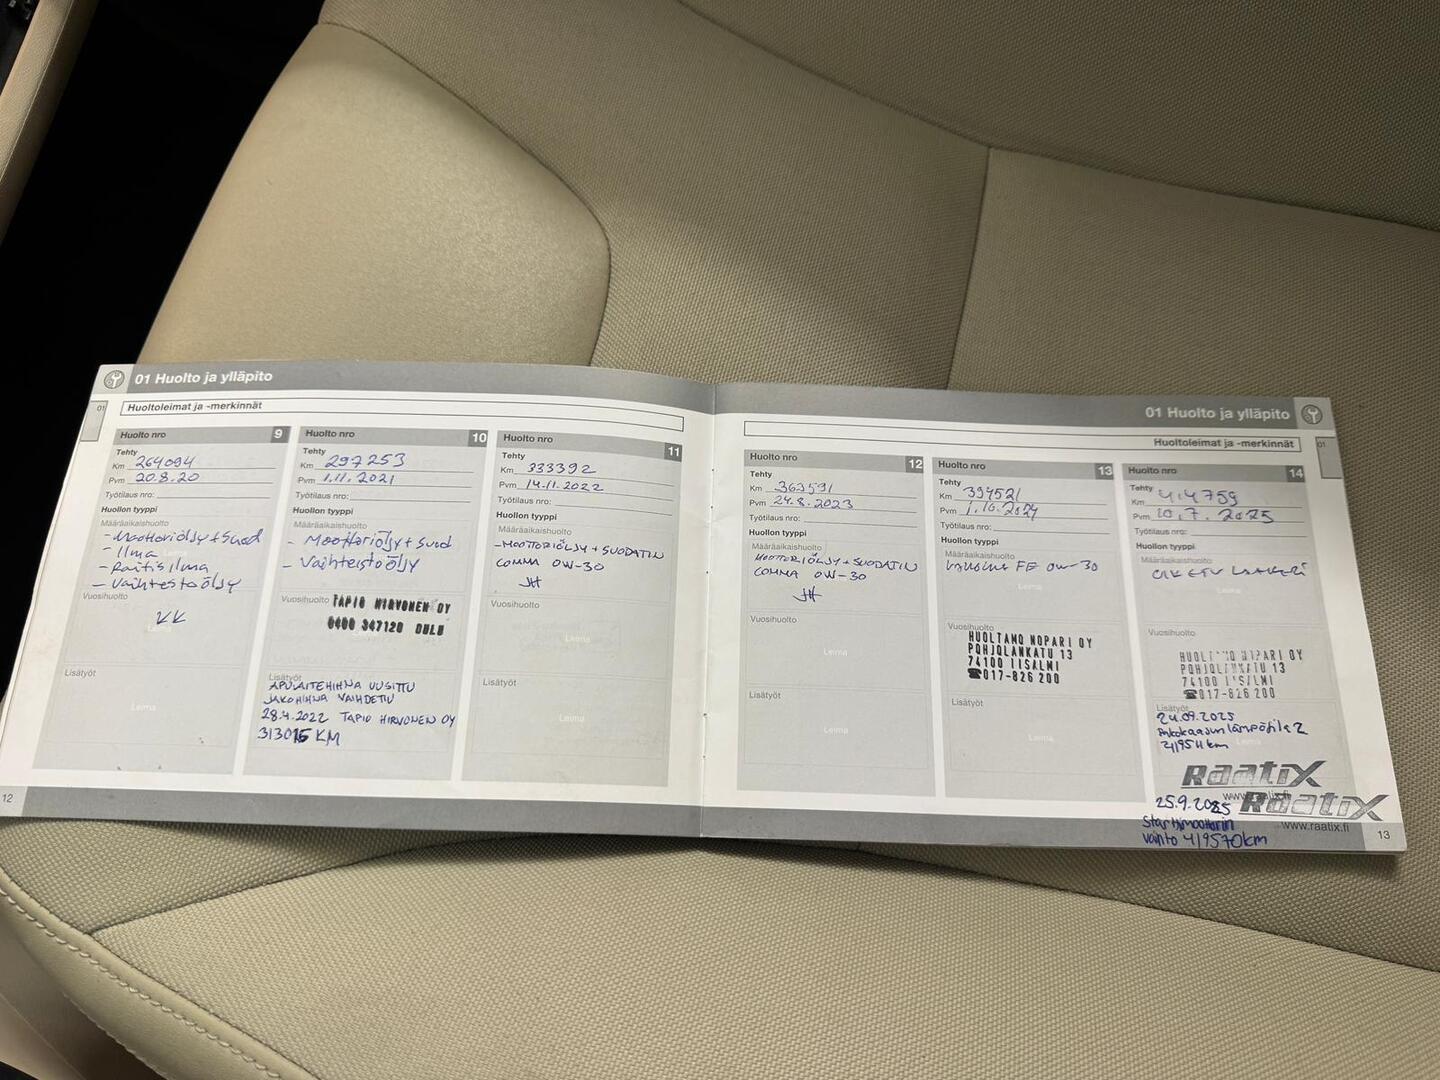 01 Huolto ja ylläpito
01
Huoltoleimat ja -merkinnät
Huolto nro 9
Tehty
Km 264094
Pvm 20.8.20
Työtilaus nro:
Huollon tyyppi
Määräaikaishuolto
- Moottoriöljy + suod
- Ilma
- Raitis ilma
- Vaihteistoöljy
Vuosihuolto
KK
Lisätyöt
Leima
12
Huolto nro 10
Tehty
Km 297253
Pvm 1.11.2021
Työtilaus nro:
Huollon tyyppi
Määräaikaishuolto
- Moottoriöljy + suod
- Vaihteistoöljy
Vuosihuolto
TAPIO HIRVONEN OY
0400 347120 OULU
Lisätyöt
APULAITEHIHNA UUSITTU
JAKOHIHNA VAIHDETTU
28.4.2022 TAPIO HIRVONEN OY
313015 KM
Huolto nro 11
Tehty
Km 333392
Pvm 14.11.2022
Työtilaus nro:
Huollon tyyppi
Määräaikaishuolto
- MOOTTORIÖLJY + SUODATIN
COMMA 0W-30
JH
Vuosihuolto
Leima
Lisätyöt
Leima
01 Huolto ja ylläpito
Huoltoleimat ja -merkinnät
01
Huolto nro 12
Tehty
Km 363591
Pvm 24.8.2023
Työtilaus nro:
Huollon tyyppi
Määräaikaishuolto
MOOTTORIÖLJY + SUODATIN
COMMA 0W-30
JH
Vuosihuolto
Leima
Lisätyöt
Leima
Huolto nro 13
Tehty
Km 394521
Pvm 1.10.2024
Työtilaus nro:
Huollon tyyppi
Määräaikaishuolto
FE 0W-30
Leima
Vuosihuolto
HUOLTAMO NOPARI OY
POHJOLANKATU 13
74100 IISALMI
☎017-826 200
Lisätyöt
Leima
Huolto nro 14
Tehty
Km 414759
Pvm 10.7.2025
Työtilaus nro:
Huollon tyyppi
Määräaikaishuolto
Leima
Vuosihuolto
HUOLTAMO NOPARI OY
POHJOLANKATU 13
74100 IISALMI
☎017-826 200
Lisätyöt
24.09.2025
Pakokaasun lämpötila 2
419511km
RaatiX
25.9.2025 RaatiX
Starttimoottorin www.raatix.fi
vaihto 419570km
13